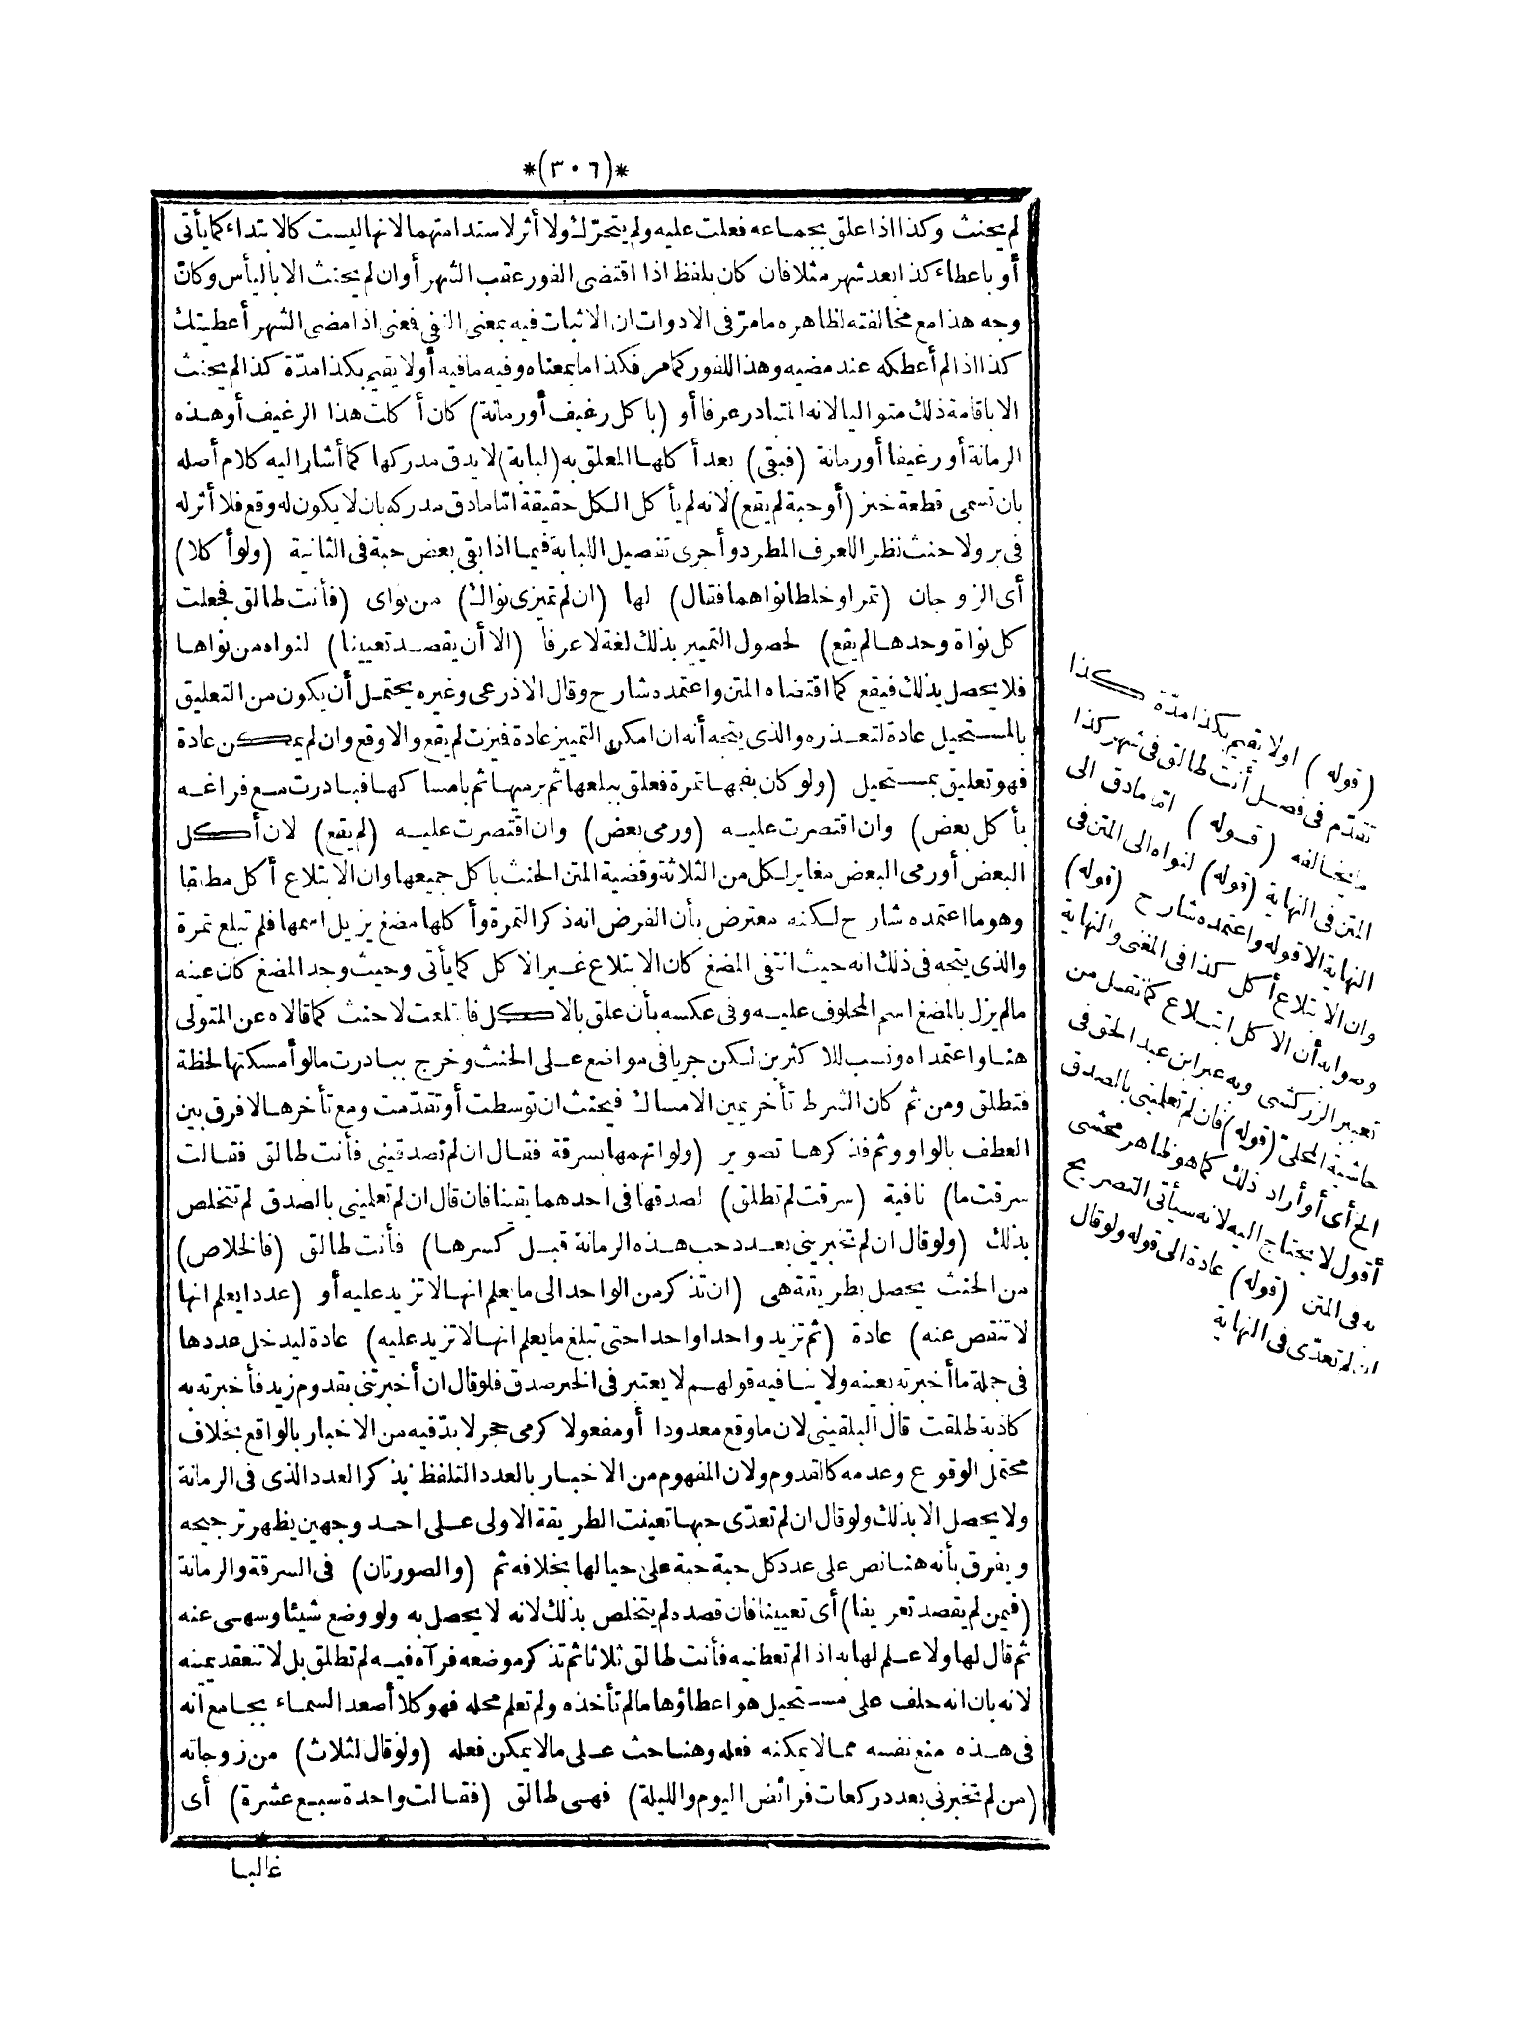 *(٣٠٦)*
لم يحنث وكذا اذا علق بجماعه فعلت عليه ولم يتحرّك ولا أثر لاستدامتهما لانها ليست كالابتداء كما يأتى
أو باعطاء كذا بعد شهر مثلا فان كان بلفظ اذا اقتضى الفور عقب الشهر أو ان لم يحنث الا باليأس وكان
وجه هذا مع مخالفته لظاهره ما مرّ فى الادوات ان الاثبات فيه بمعنى النفى فمعنى اذا مضى الشهر أعطيتك
كذا اذا لم أعطكه عند مضيه وهذا للفور كما مر فكذا ما بمعناه وفيه ما فيه أولا يقيم بكذا مدّة كذا لم يحنث
الا باقامة ذلك متواليا لانه المتبادر عرفا أو (باكل رغيف أو رمانة) كان أكلت هذا الرغيف أو هذه
الرمانة أو رغيفا أو رمانة (فبقى) بعد أكلها المعلق به (لبابة) لا يدق مدركها كما أشار اليه كلام أصله
بان تسمى قطعة خبز (أو حبة لم يقع) لانه لم يأكل الكل حقيقة امّا ما دق مدركه بان لا يكون له وقع فلا أثر له
فى بر ولا حنث نظرا للعرف المطرد وأجرى تفصيل اللبابة فيما اذا بقى بعض حبة فى الثانية (ولو أكلا)
أى الزوجان (تمرا وخلطا نواهما فقال) لها (ان لم تميزى نواك) من نواى (فأنت طالق فجعلت
كل نواة وحدها لم يقع) لحصول التمييز بذلك لغة لا عرفا (الا أن يقصد تعيينا) لنواه من نواها
فلا يحصل بذلك فيقع كما اقتضاه المتن واعتمده شارح وقال الاذرعى وغيره يحتمل أن يكون من التعليق
بالمستحيل عادة لتعذره والذى يتجه أنه ان امكن التمييز عادة فميزت لم يقع والا وقع وان لم يمكن عادة
فهو تعليق بمستحيل (ولو كان بفمها تمرة فعلق ببلعها ثم برميها ثم بامساكها فبادرت مع فراغه
بأكل بعض) وان اقتصرت عليه (ورمى بعض) وان اقتصرت عليه (لم يقع) لان أكل
البعض أو رمى البعض مغاير لكل من الثلاثة وقضية المتن الحنث باكل جميعها وان الابتلاع أكل مطلقا
وهو ما اعتمده شارح لكنه معترض بأن الفرض انه ذكر التمرة وأكلها مضغ يزيل اسمها فلم تبلع تمرة
والذى يتجه فى ذلك انه حيث انتفى المضغ كان الابتلاع غير الاكل كما يأتى وحيث وجد المضغ كان عنه
ما لم يزل بالمضغ اسم المحلوف عليه وفى عكسه بأن علق بالاكل فابتلعت لا حنث كما قالاه عن المتولى
هنا واعتمداه ونسب للاكثرين لكن جريا فى مواضع على الحنث وخرج ببادرت ما لو أمسكتها لحظة
فتطلق ومن ثم كان الشرط تأخر يمين الامساك فيحنث ان توسطت أو تقدّمت ومع تأخرها لا فرق بين
العطف بالواو وثم فذكرها تصوير (ولو اتهمها بسرقة فقال ان لم تصدقينى فأنت طالق فقالت
سرقت ما) نافية (سرقت لم تطلق) لصدقها فى احدهما يقينا فان قال ان لم تعلمينى بالصدق لم تتخلص
بذلك (ولو قال ان لم تخبرينى بعدد حب هذه الرمانة قبل كسرها) فأنت طالق (فالخلاص)
من الحنث يحصل بطريقة هى (ان تذكر من الواحد الى ما يعلم انها لا تزيد عليه أو (عددا يعلم انها
لا تنقص عنه) عادة (ثم تزيد واحدا واحدا حتى تبلغ ما يعلم انها لا تزيد عليه) عادة ليدخل عددها
فى جملة ما أخبرته بعينه ولا ينافيه قولهم لا يعتبر فى الخبر صدق فلو قال ان أخبرتنى بقدوم زيد فأخبرته به
كاذبة طلقت قال البلقينى لان ما وقع معدودا أو مفعولا كرمى حجر لا بدّ فيه من الاخبار بالواقع بخلاف
محتمل الوقوع وعدمه كالقدوم ولان المفهوم من الاخبار بالعدد التلفظ بذكر العدد الذى فى الرمانة
ولا يحصل الا بذلك ولو قال ان لم تعدّى حبها تعينت الطريقة الاولى على احد وجهين يظهر ترجيحه
ويفرق بأنه هنا نص على عدد كل حبة حبة على حيالها بخلافه ثم (والصورتان) فى السرقة والرمانة
(فيمن لم يقصد تعريفا) أى تعيينا فان قصده لم يتخلص بذلك لانه لا يحصل به ولو وضع شيئا وسهى عنه
ثم قال لها ولا علم لها به اذا لم تعطنيه فأنت طالق ثلاثا ثم تذكر موضعه فرآه فيه لم تطلق بل لا تنعقد يمينه
لانه بان انه حلف على مستحيل هو اعطاؤها ما لم تأخذه ولم تعلم محله فهو كلا أصعد السماء بجامع انه
فى هذه منع نفسه مما لا يمكنه فعله وهنا حث على ما لا يمكن فعله (ولو قال لثلاث) من زوجاته
(من لم تخبرنى بعدد ركعات فرائض اليوم والليلة) فهى طالق (فقالت واحدة سبع عشرة) أى
غالبا
(قوله) اولا يقيم بكذا مدّة كذا
تقدّم فى فصل أنت طالق فى شهر كذا
ما يخالفه (قوله) امّا ما دق الى
المتن فى النهاية (قوله) لنواه الى المتن فى
النهاية الا قوله واعتمده شارح (قوله)
وان الابتلاع أكل كذا فى المغنى والنهاية
وصوابه أن الاكل ابتلاع كما نقل من
تعبير الزركشى وبه عبر ابن عبد الحق فى
حاشية المحلى (قوله) فان لم تعلمينى بالصدق
الخ أى أو أراد ذلك كما هو ظاهر محشى
أقول لا يحتاج اليه لانه سيأتى التصريح
به فى المتن (قوله) عادة الى قوله ولو قال
ان لم تعدّى فى النهاية